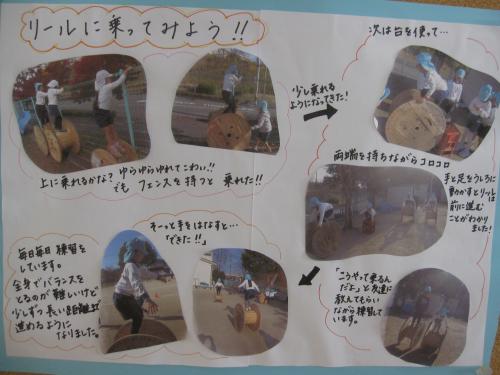 リールに乗ってみよう!!
上に乗れるかな?ゆらゆらゆれてこわい!!
でも フェンスを持つと 乗れた!!
少し乗れる
ようになってきた!
次は台を使って…
両端を持ちながらコロコロ
手と足をうしろに
動かすとリールは
前に進む
ことがわかり
ました!
「こうやって乗るん
だよ」と友達に
教えてもらい
ながら練習して
います。
そーっと手をはなすと…
「できた!!」
毎日毎日練習を
しています。
全身でバランスを
とるのが難しいけど
少しずつ長い距離を
進めるように
なりました。